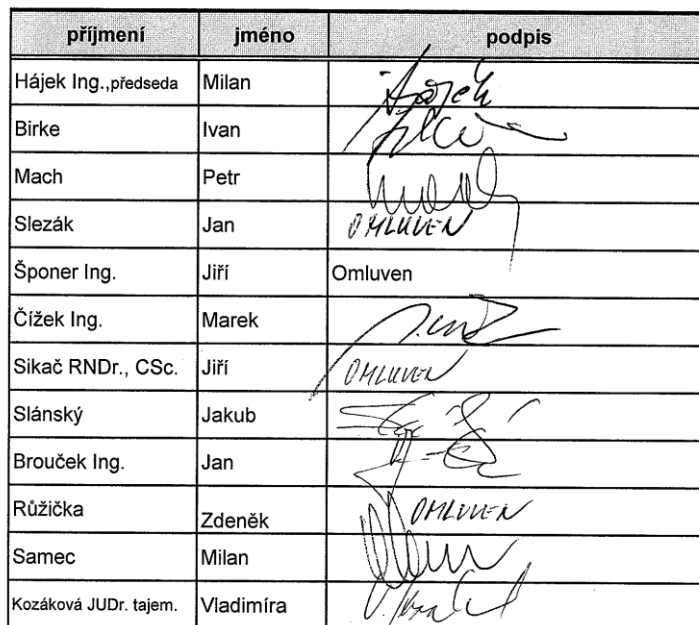 příjmení jméno podpis
Hájek Ing.,předseda Milan
Birke Ivan
Mach Petr
Slezák Jan OMLUVEN
Šponer Ing. Jiří Omluven
Čížek Ing. Marek
Sikač RNDr., CSc. Jiří OMLUVEN
Slánský Jakub
Brouček Ing. Jan
Růžička Zdeněk OMLUVEN
Samec Milan
Kozáková JUDr. tajem. Vladimíra